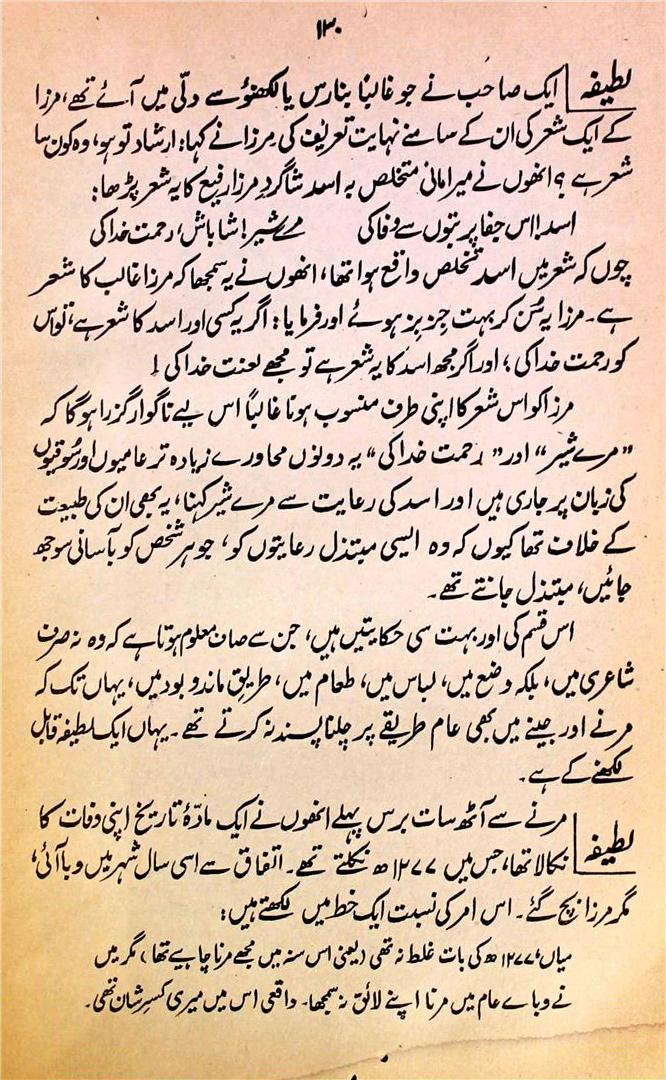 ۱۳۰
لطیفہ ایک صاحب نے جو غالباً بنارس یا لکھنؤ سے دلّی میں آئے تھے، مرزا
کے ایک شعر کی ان کے سامنے نہایت تعریف کی۔ مرزا نے کہا: ارشاد تو ہو، وہ کون سا
شعر ہے؟ انھوں نے میر امانی متخلص بہ اسد شاگردِ مرزا رفیع کا یہ شعر پڑھا:
اسد! اس جفا پر بتوں سے وفا کی مرے شیر! شاباش، رحمت خدا کی
چوں کہ شعر میں اسد تخلص واقع ہوا تھا، انھوں نے یہ سمجھا کہ مرزا غالب کا شعر
ہے۔ مرزا یہ سُن کر بہت جِز بِز ہوئے اور فرمایا: اگر یہ کسی اور اسد کا شعر ہے، تو اس
کو رحمت خدا کی؛ اور اگر مجھ اسد کا یہ شعر ہے تو مجھے لعنت خدا کی!
مرزا کو اس شعر کا اپنی طرف منسوب ہونا غالباً اس لیے ناگوار گزرا ہوگا کہ
”مرے شیر“ اور ”رحمت خدا کی“ یہ دونوں محاورے زیادہ تر عامیوں اور سُوقیوں
کی زبان پر جاری ہیں اور اسد کی رعایت سے مرے شیر کہنا، یہ بھی ان کی طبیعت
کے خلاف تھا کیوں کہ وہ ایسی مبتذل رعایتوں کو، جو ہر شخص کو بآسانی سوجھ
جائیں، مبتذل جانتے تھے۔
اس قسم کی اور بہت سی حکایتیں ہیں، جن سے صاف معلوم ہوتا ہے کہ وہ نہ صرف
شاعری میں، بلکہ وضع میں، لباس میں، طعام میں، طریقِ ماند و بود میں، یہاں تک کہ
مرنے اور جینے میں بھی عام طریقے پر چلنا پسند نہ کرتے تھے۔ یہاں ایک لطیفہ قابل
لکھنے کے ہے۔
لطیفہ مرنے سے آٹھ سات برس پہلے انھوں نے ایک مادّۂ تاریخ اپنی وفات کا
نکالا تھا، جس میں ۱۲۷۷ ھ نکلتے تھے۔ اتفاق سے اسی سال شہر میں وبا آئی،
مگر مرزا بچ گئے۔ اس امر کی نسبت ایک خط میں لکھتے ہیں:
میاں، ۱۲۷۷ ھ کی بات غلط نہ تھی (یعنی اس سنہ میں مجھے مرنا چاہیے تھا) مگر میں
نے وباے عام میں مرنا اپنے لائق نہ سمجھا۔ واقعی اس میں میری کسرِ شان تھی۔